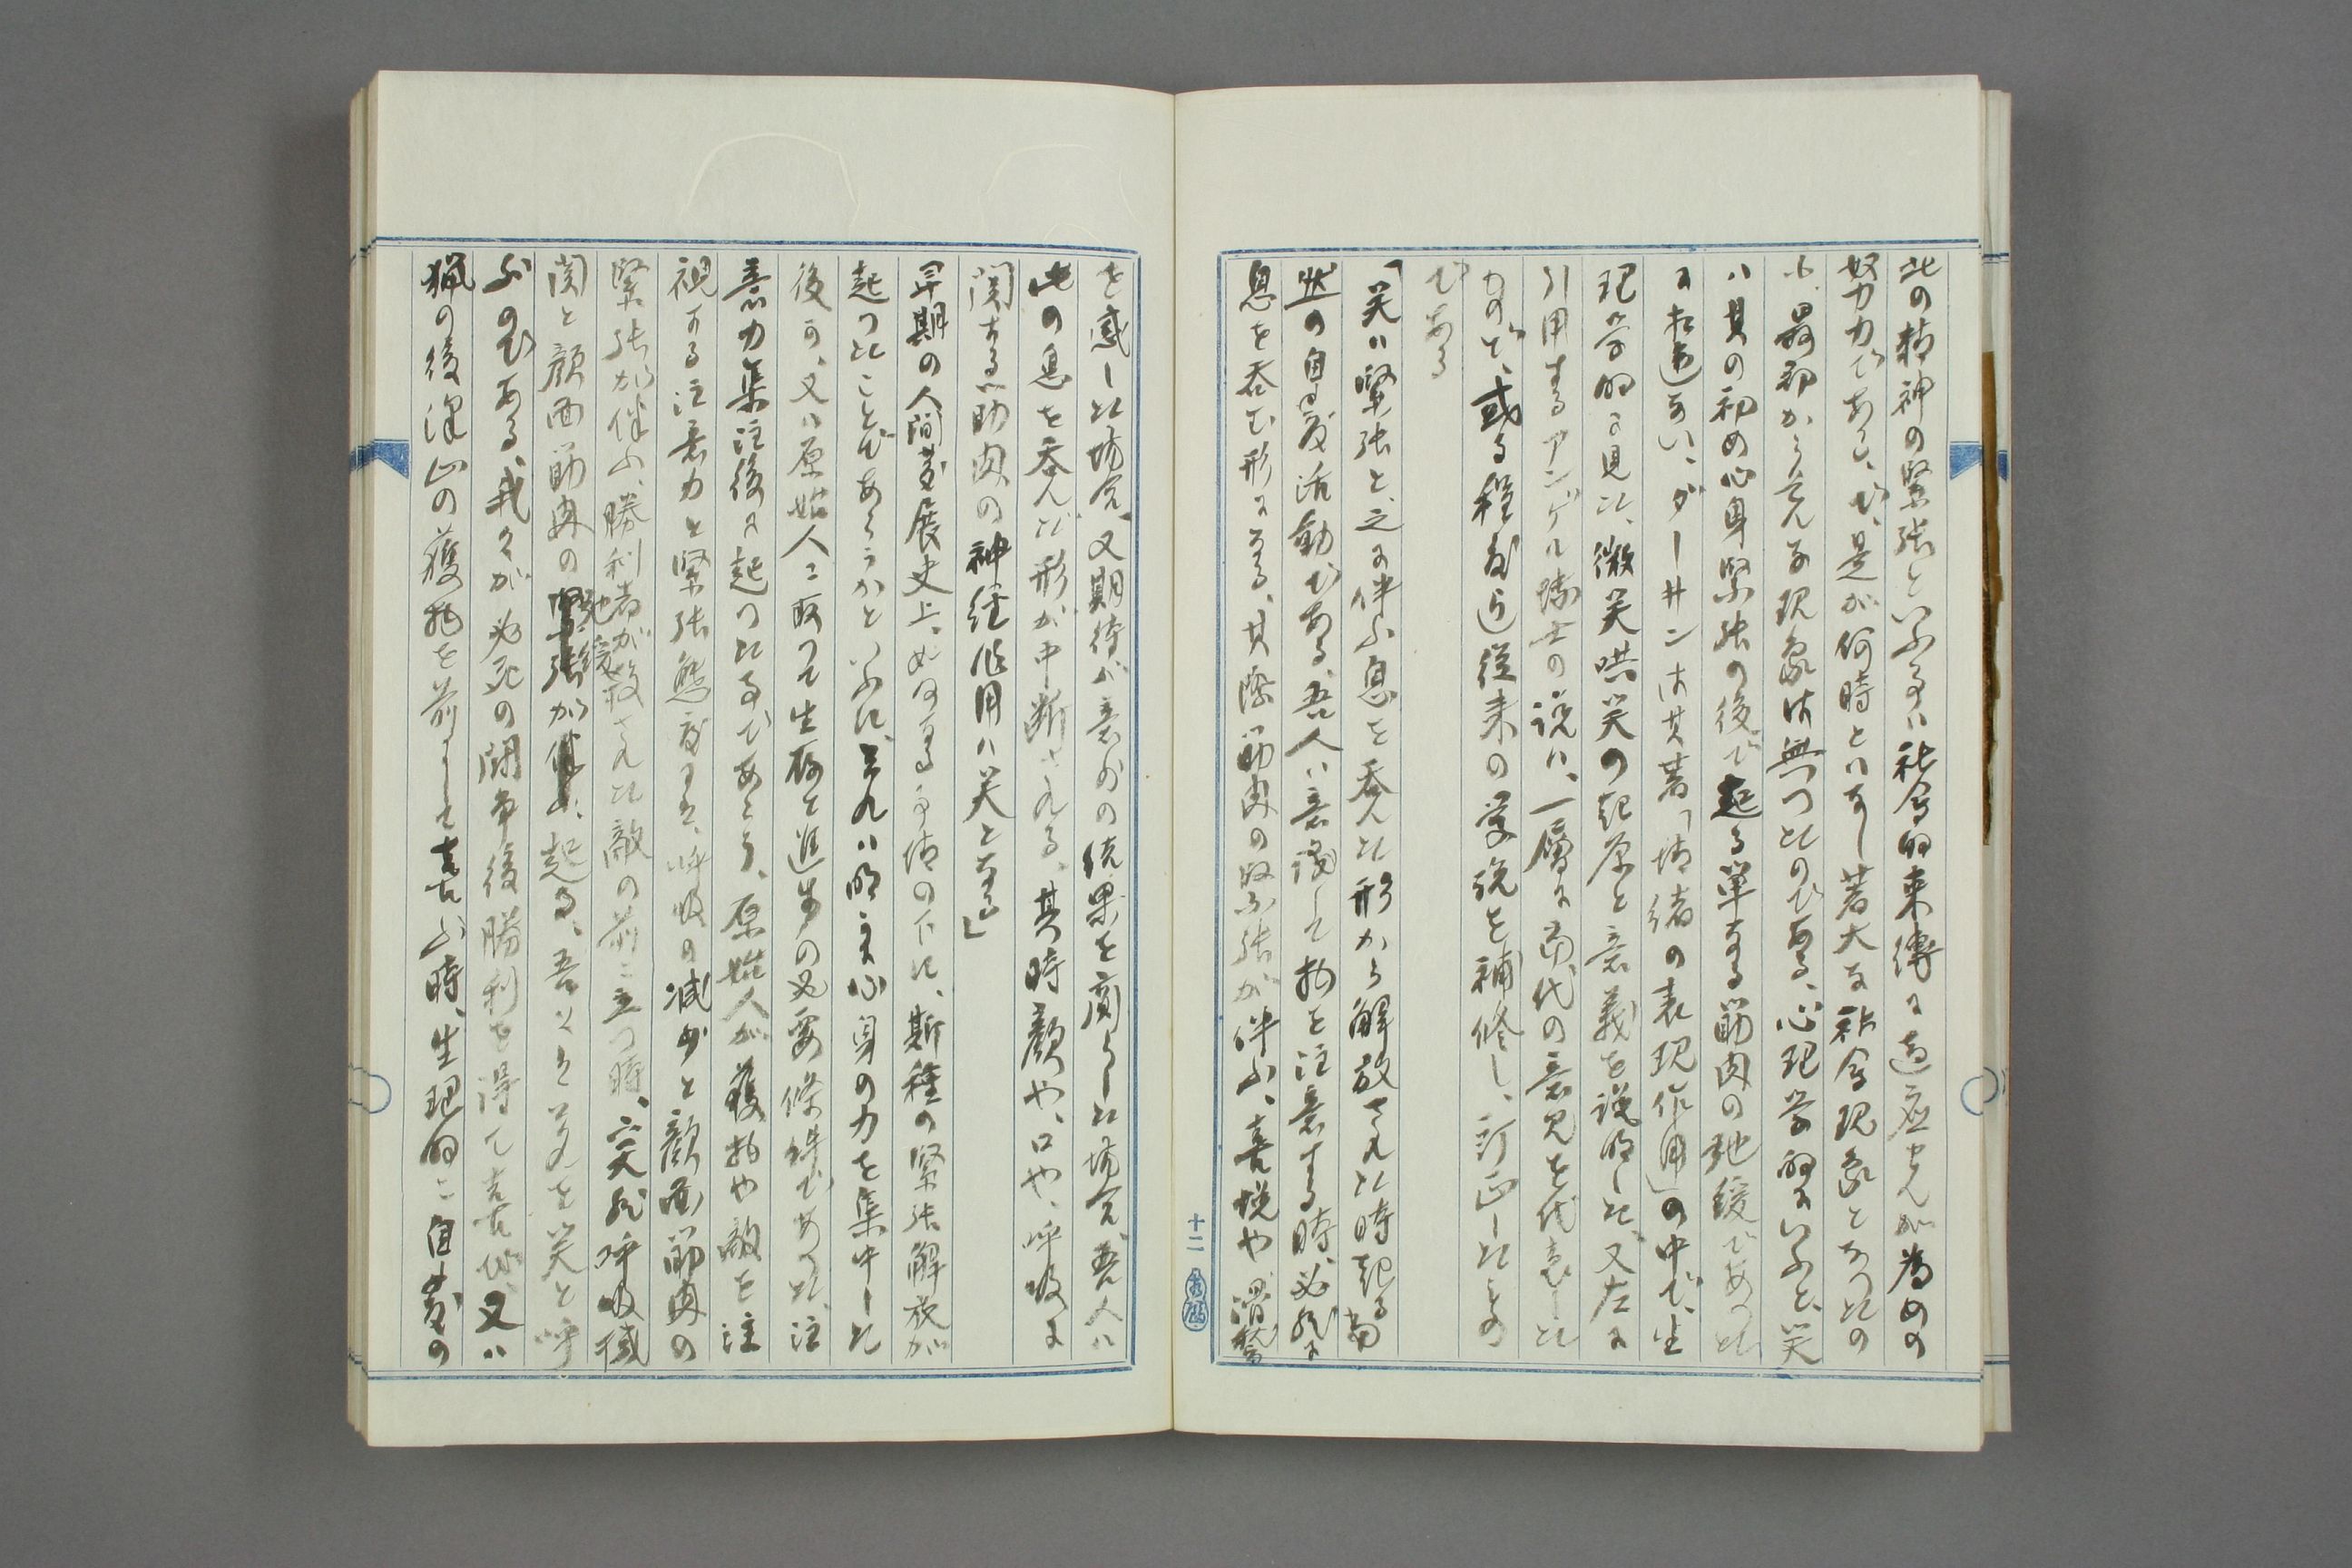 此の精神の緊張といふ事は社会的束縛に適応せんが為めの
努力力である、で、是が何時とはなし著大な社会現象となつたの
小、最初からそんな現象は無つたのである、心理学的にいふと、笑
ハ其の初め心身緊張の後で起る単なる筋肉の弛緩であつた
に相違ない、ダーヰンは其著「情緒の表現作用」の中で、生
理学的に見た、微笑哄笑の起原と意義を説明した、又左に
引用するアンゲル博士の説ハ、一層に当代の意見を代表した
もので、或る程度迄従来の学説を補修し、訂正したもの
である
「笑ハ緊張と、之に伴ふ息を呑んだ形から解放された時起る
の自発活動である、吾人ハ意識して物を注意する時、必然に
息を呑む形になる、其際筋肉の緊張が伴ふ、喜悦や滑稽
を感じた場合、又期待が意外の結果を齎らした場合、吾人ハ
此の息を呑んだ形が中断される、其時顔や、口や、呼吸に
関する筋肉の神経作用ハ笑となる」
早期の人間発展史上、如何なる事情の下に、斯種の緊張解放が
起つたことであらうかといふに、それハ明に心身の力を集中した
後か、又ハ原始人に取つて生存と進歩の必要條件であつた、注
意力集注後に起つた事であらう、原始人が獲物や敵を注
視する注意力と緊張態度にハ、呼吸の減少と顔面筋肉の
緊張が伴ふ、勝利者が殺された敵の前に立つ時、突然呼吸機
関と顔面筋肉の弛緩が起る、吾々はそれを笑と呼
ぶのである、我々が必死の闘争後勝利を得て喜び、又ハ
猟の後沢山の獲物を前にして喜ぶ時、生理的に自発の
十二